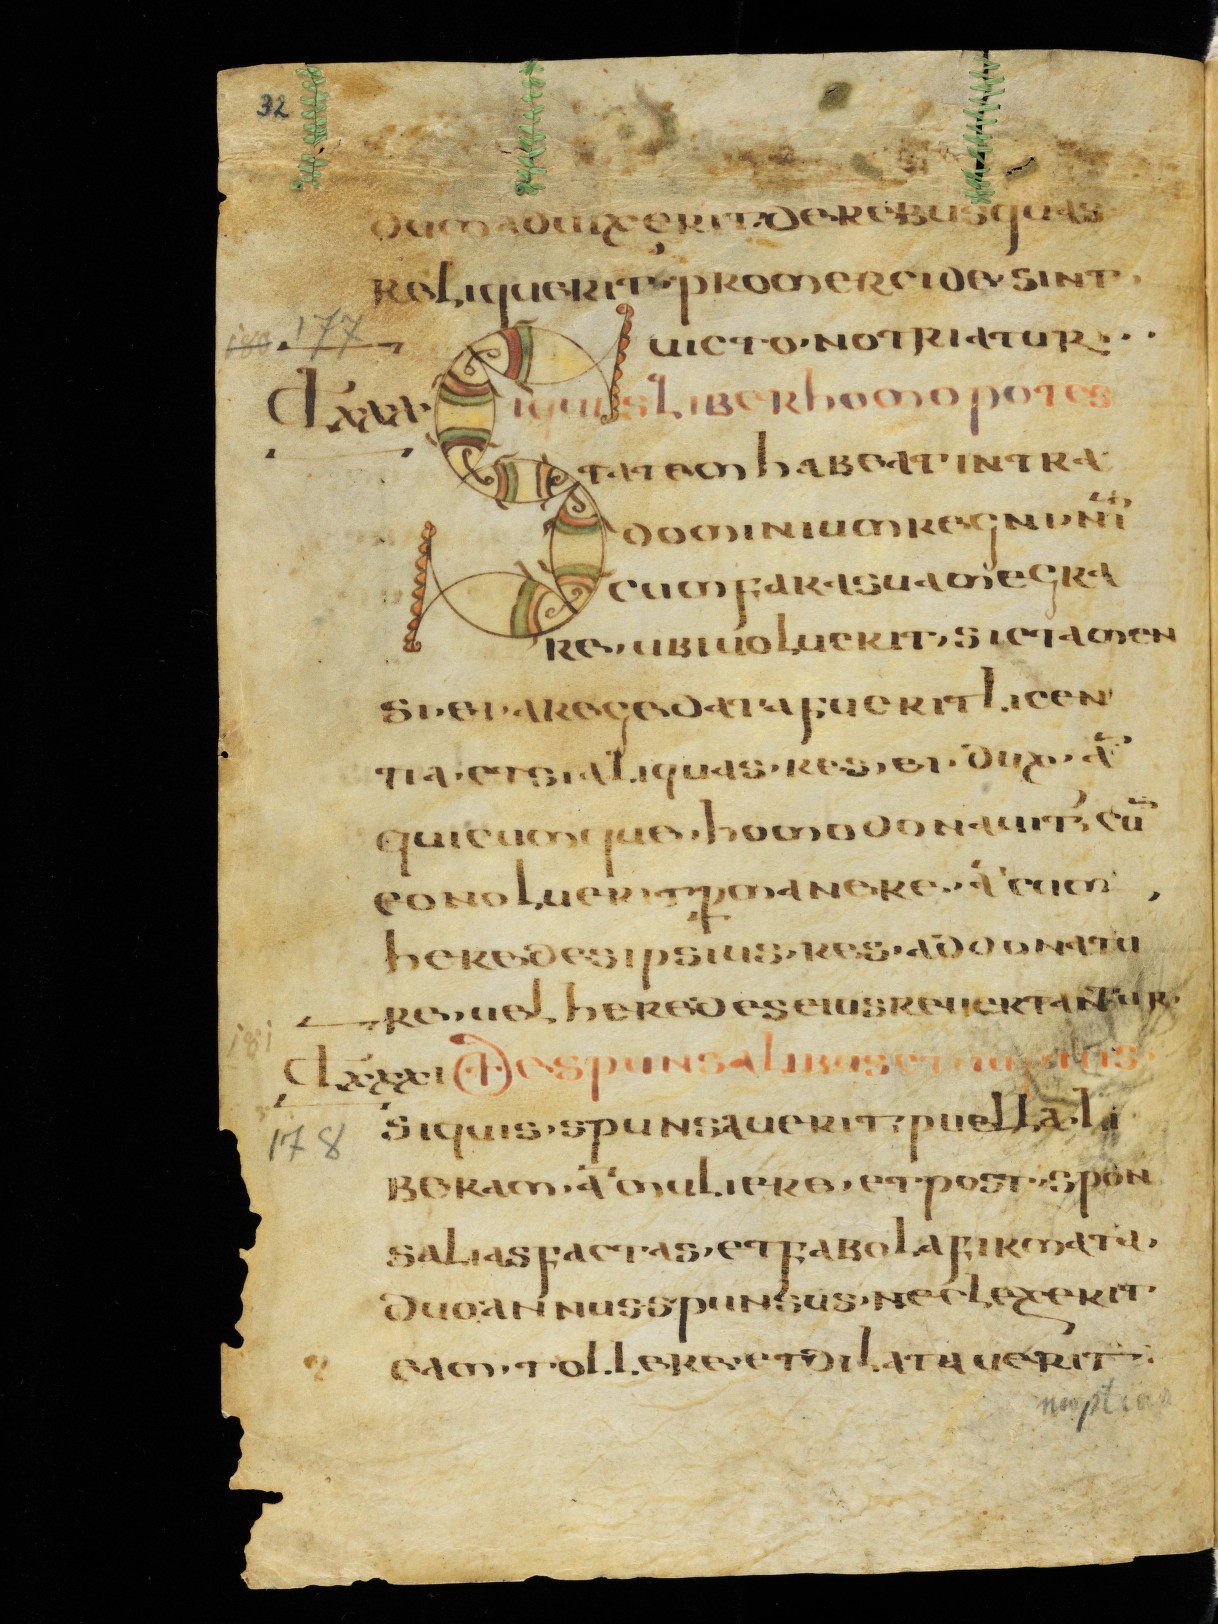 32
dum aduixerit. de rebus quas
reliquerit, pro mercide, sint,
180 177
uicto. notriatur...
CLxxx Si quis liber homo potes
tatem habeat intra
dominium regni n̄ri
cum fara sua megra
re, ubi uoluerit, sic tamen
si, ei, a rege data fuerit licen
tia, et si aliquas, res, ei, dux, a͞
quicumque, homo donauit, cu͞
eo noluerit ꝑmanere, a͞ cum,
heredes ipsius, res, ad donatu
re, uel heredes eius reuertantur.
181
CLxxxi De spunsalibus et nuptiis.
178
Si quis, spunsauerit, puella. li
beram, a͞ muliere, et post, spon
salias factas, et fabola firmata,
duo annus spunsus, neclexerit
eam, tollere, et dilatauerit
nuptias